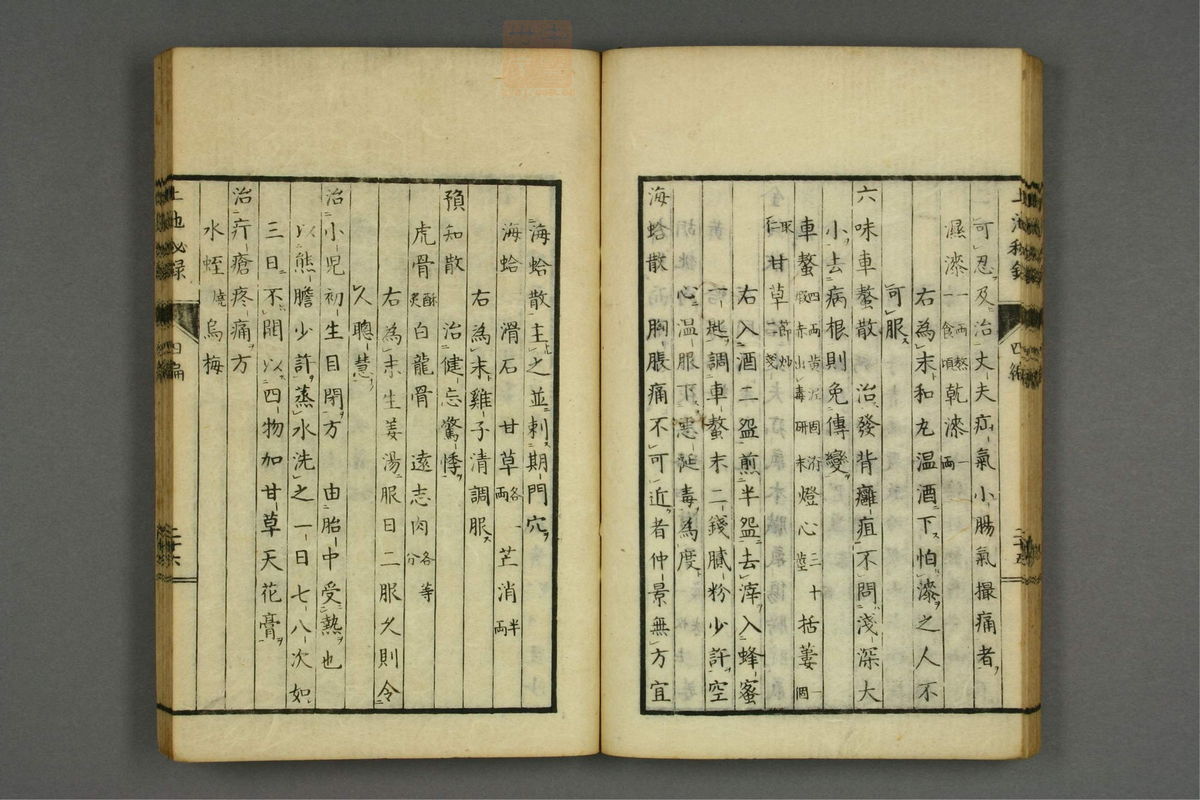 可忍及治丈夫疝氣小腸氣撮痛者
濕漆一兩熬一食頃乾漆一兩
右為末和丸温酒下怕漆之人不
可服
六味車螯散 治發背癰疽不問淺深大
小去病根則免傳變
車螯四兩黄泥固濟煅赤出毒研末燈心三十莖括蔞一箇
取仁甘草節炒二錢
右入酒二盌煎半盌去滓入蜂蜜
一匙調車螯末二錢膩粉少許空
心温服下惡涎毒為度
海蛤散 胸脹痛不可近者仲景無方宜
海蛤散主之並刺期門穴
海蛤 滑石 甘草各一兩 芒消半兩
右為末雞子清調服
預知散 治健忘驚悸
虎骨酥炙白龍骨 遠志肉各等分
右為末生姜湯服日二服久則令
人聰慧
治小兒初生目閉方 由胎中受熱也
以熊膽少許蒸水洗之一日七八次如
三日不開以四物加甘草天花膏
治疔瘡疼痛方
水蛭燒烏梅
四編
四編
二十六